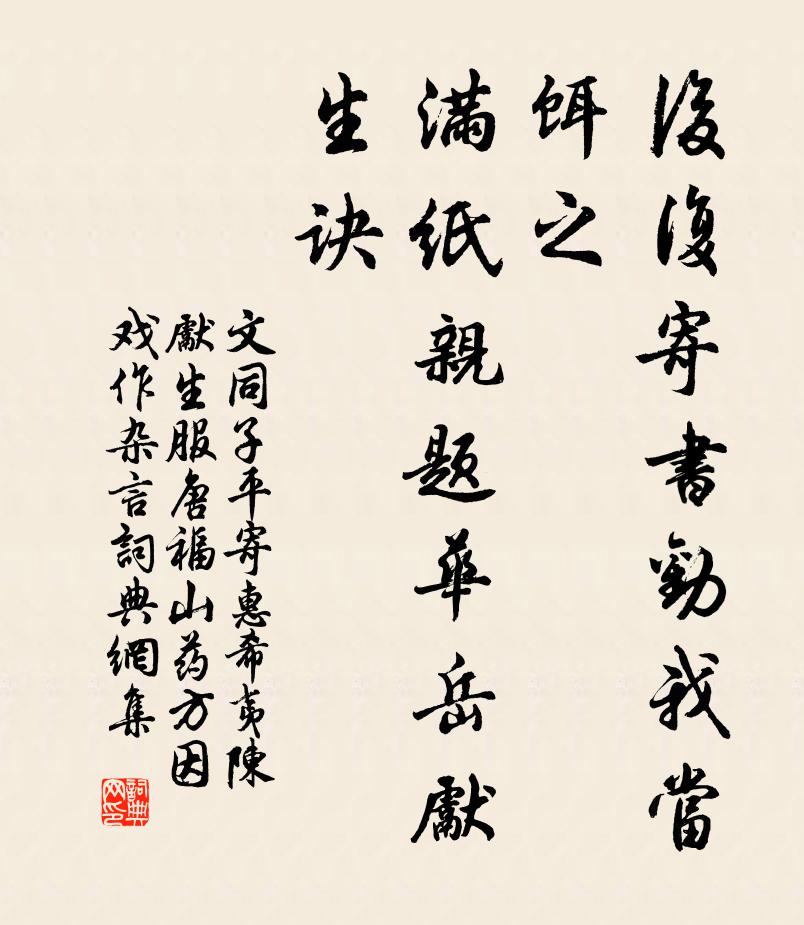 後復寄書勸我當
餌之
滿紙親題華岳獻
生诀
文同子平寄惠希夷陳
獻生服唐福山药方因
戏作杂言詞典網集
詞典网印